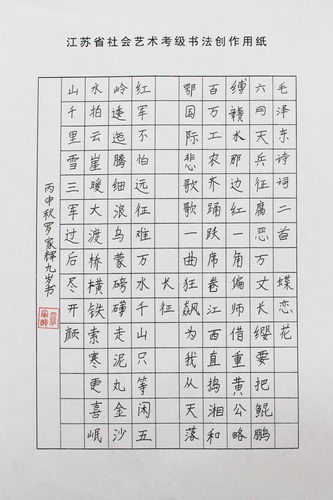 江苏省社会艺术考级书法创作用纸
毛泽东诗词二首 蝶恋花
六月天兵征腐恶万丈长缨要把鲲鹏
缚赣水那边红一角偏师借重黄公略
百万工农齐踊跃席卷江西直捣湘和
鄂国际悲歌歌一曲狂飙为我从天落
长征
红军不怕远征难万水千山只等闲五
岭逶迤腾细浪乌蒙磅礴走泥丸金沙
水拍云崖暖大渡桥横铁索寒更喜岷
山千里雪三军过后尽开颜
丙申秋罗家辉九岁书